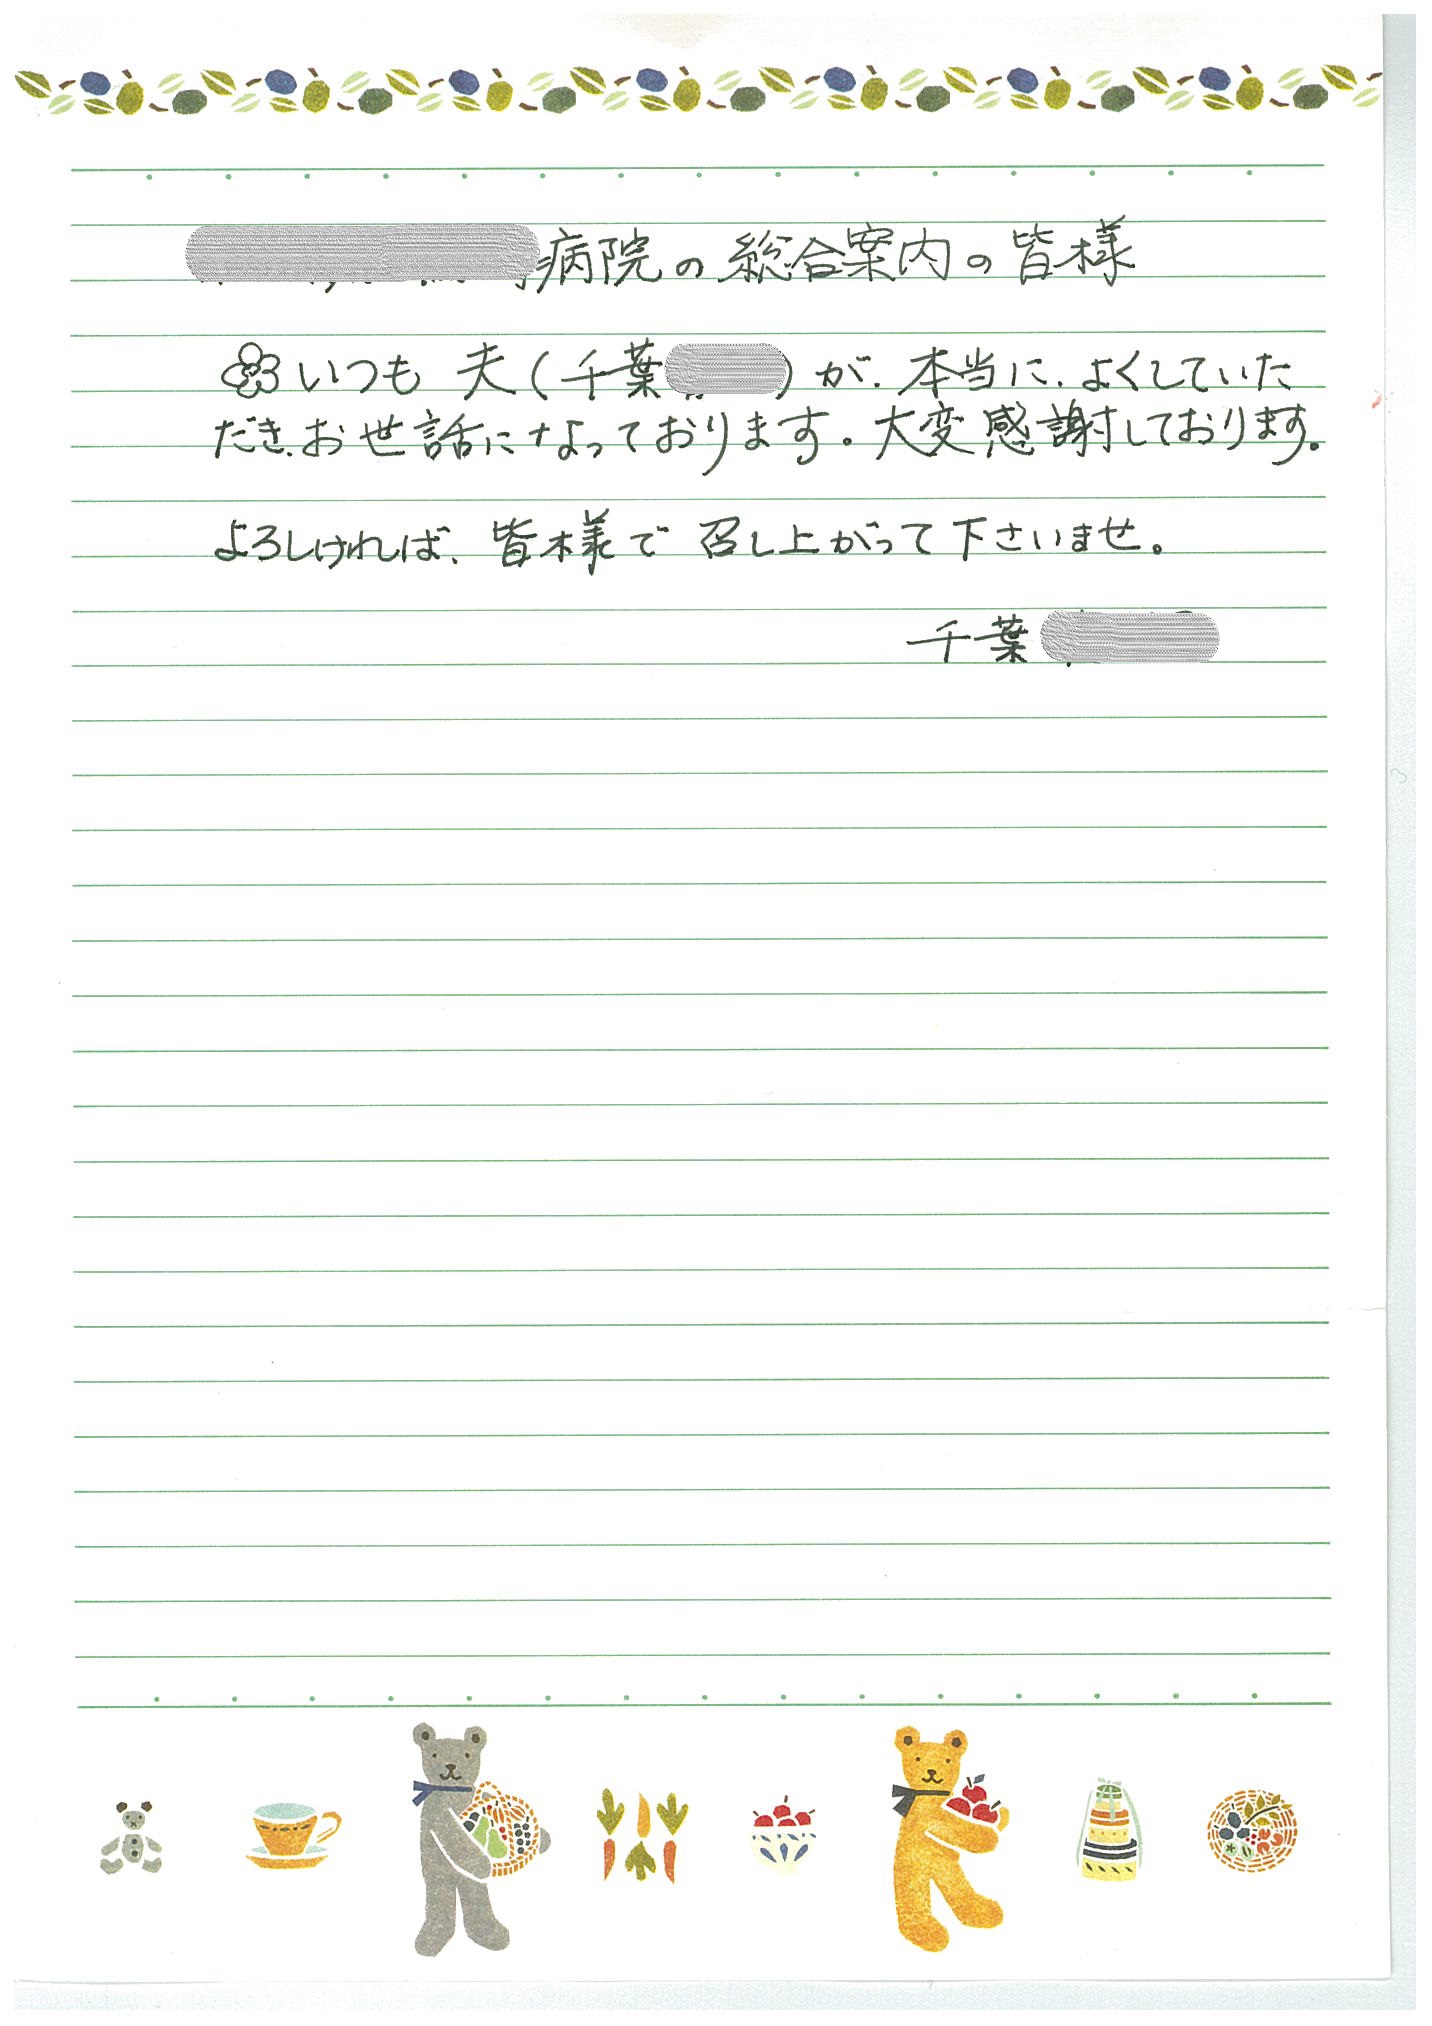 病院の総合案内の皆様
いつも 夫(千葉)が、本当に、よくしていた
だき、お世話になっております。大変感謝しております。
よろしければ、皆様で 召し上がって下さいませ。
千葉